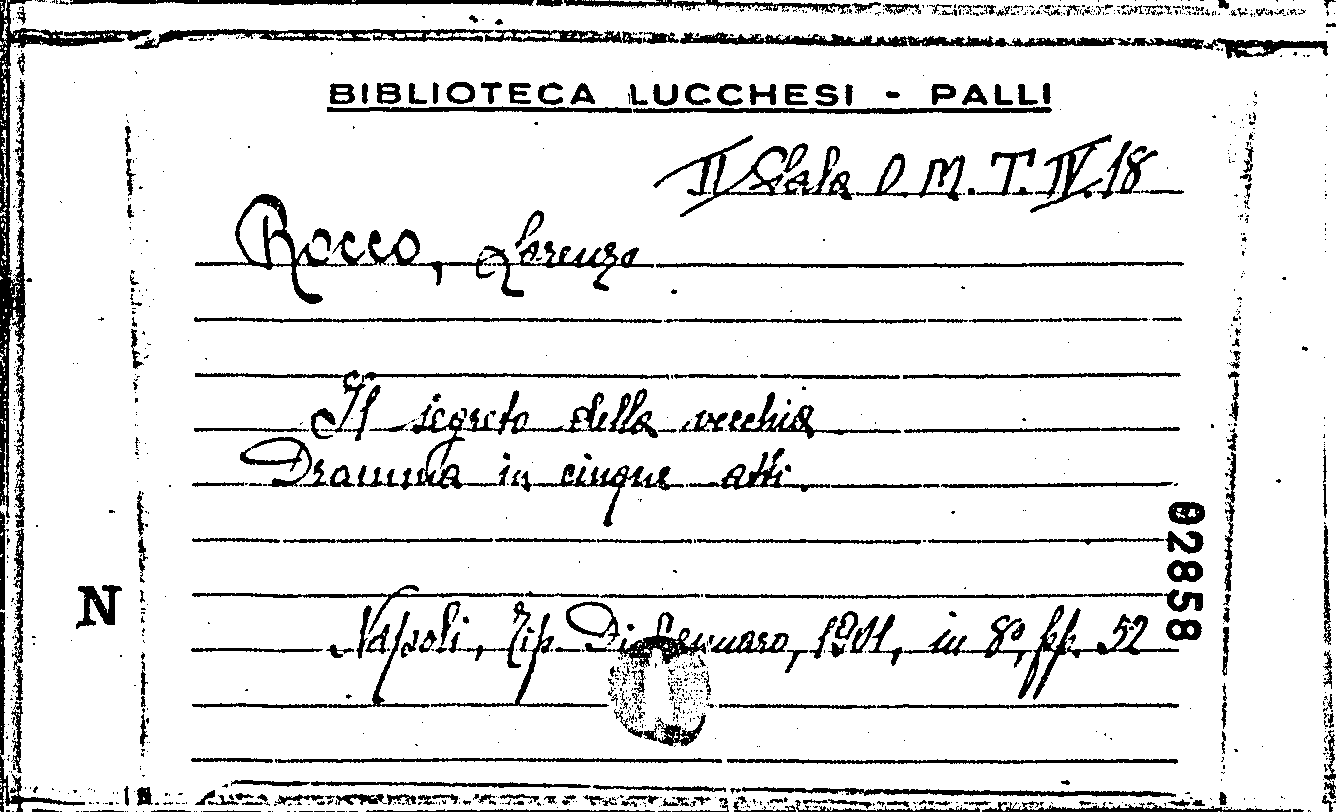 BIBLIOTECA LUCCHESI - PALLI
II Sala O. M. T. IV. 18
Rocco, Lorenzo
Il segreto della vecchia
Dramma in cinque atti.
02858
N
Napoli, Tip. Di Gennaro, 1901, in 8°, pp. 52